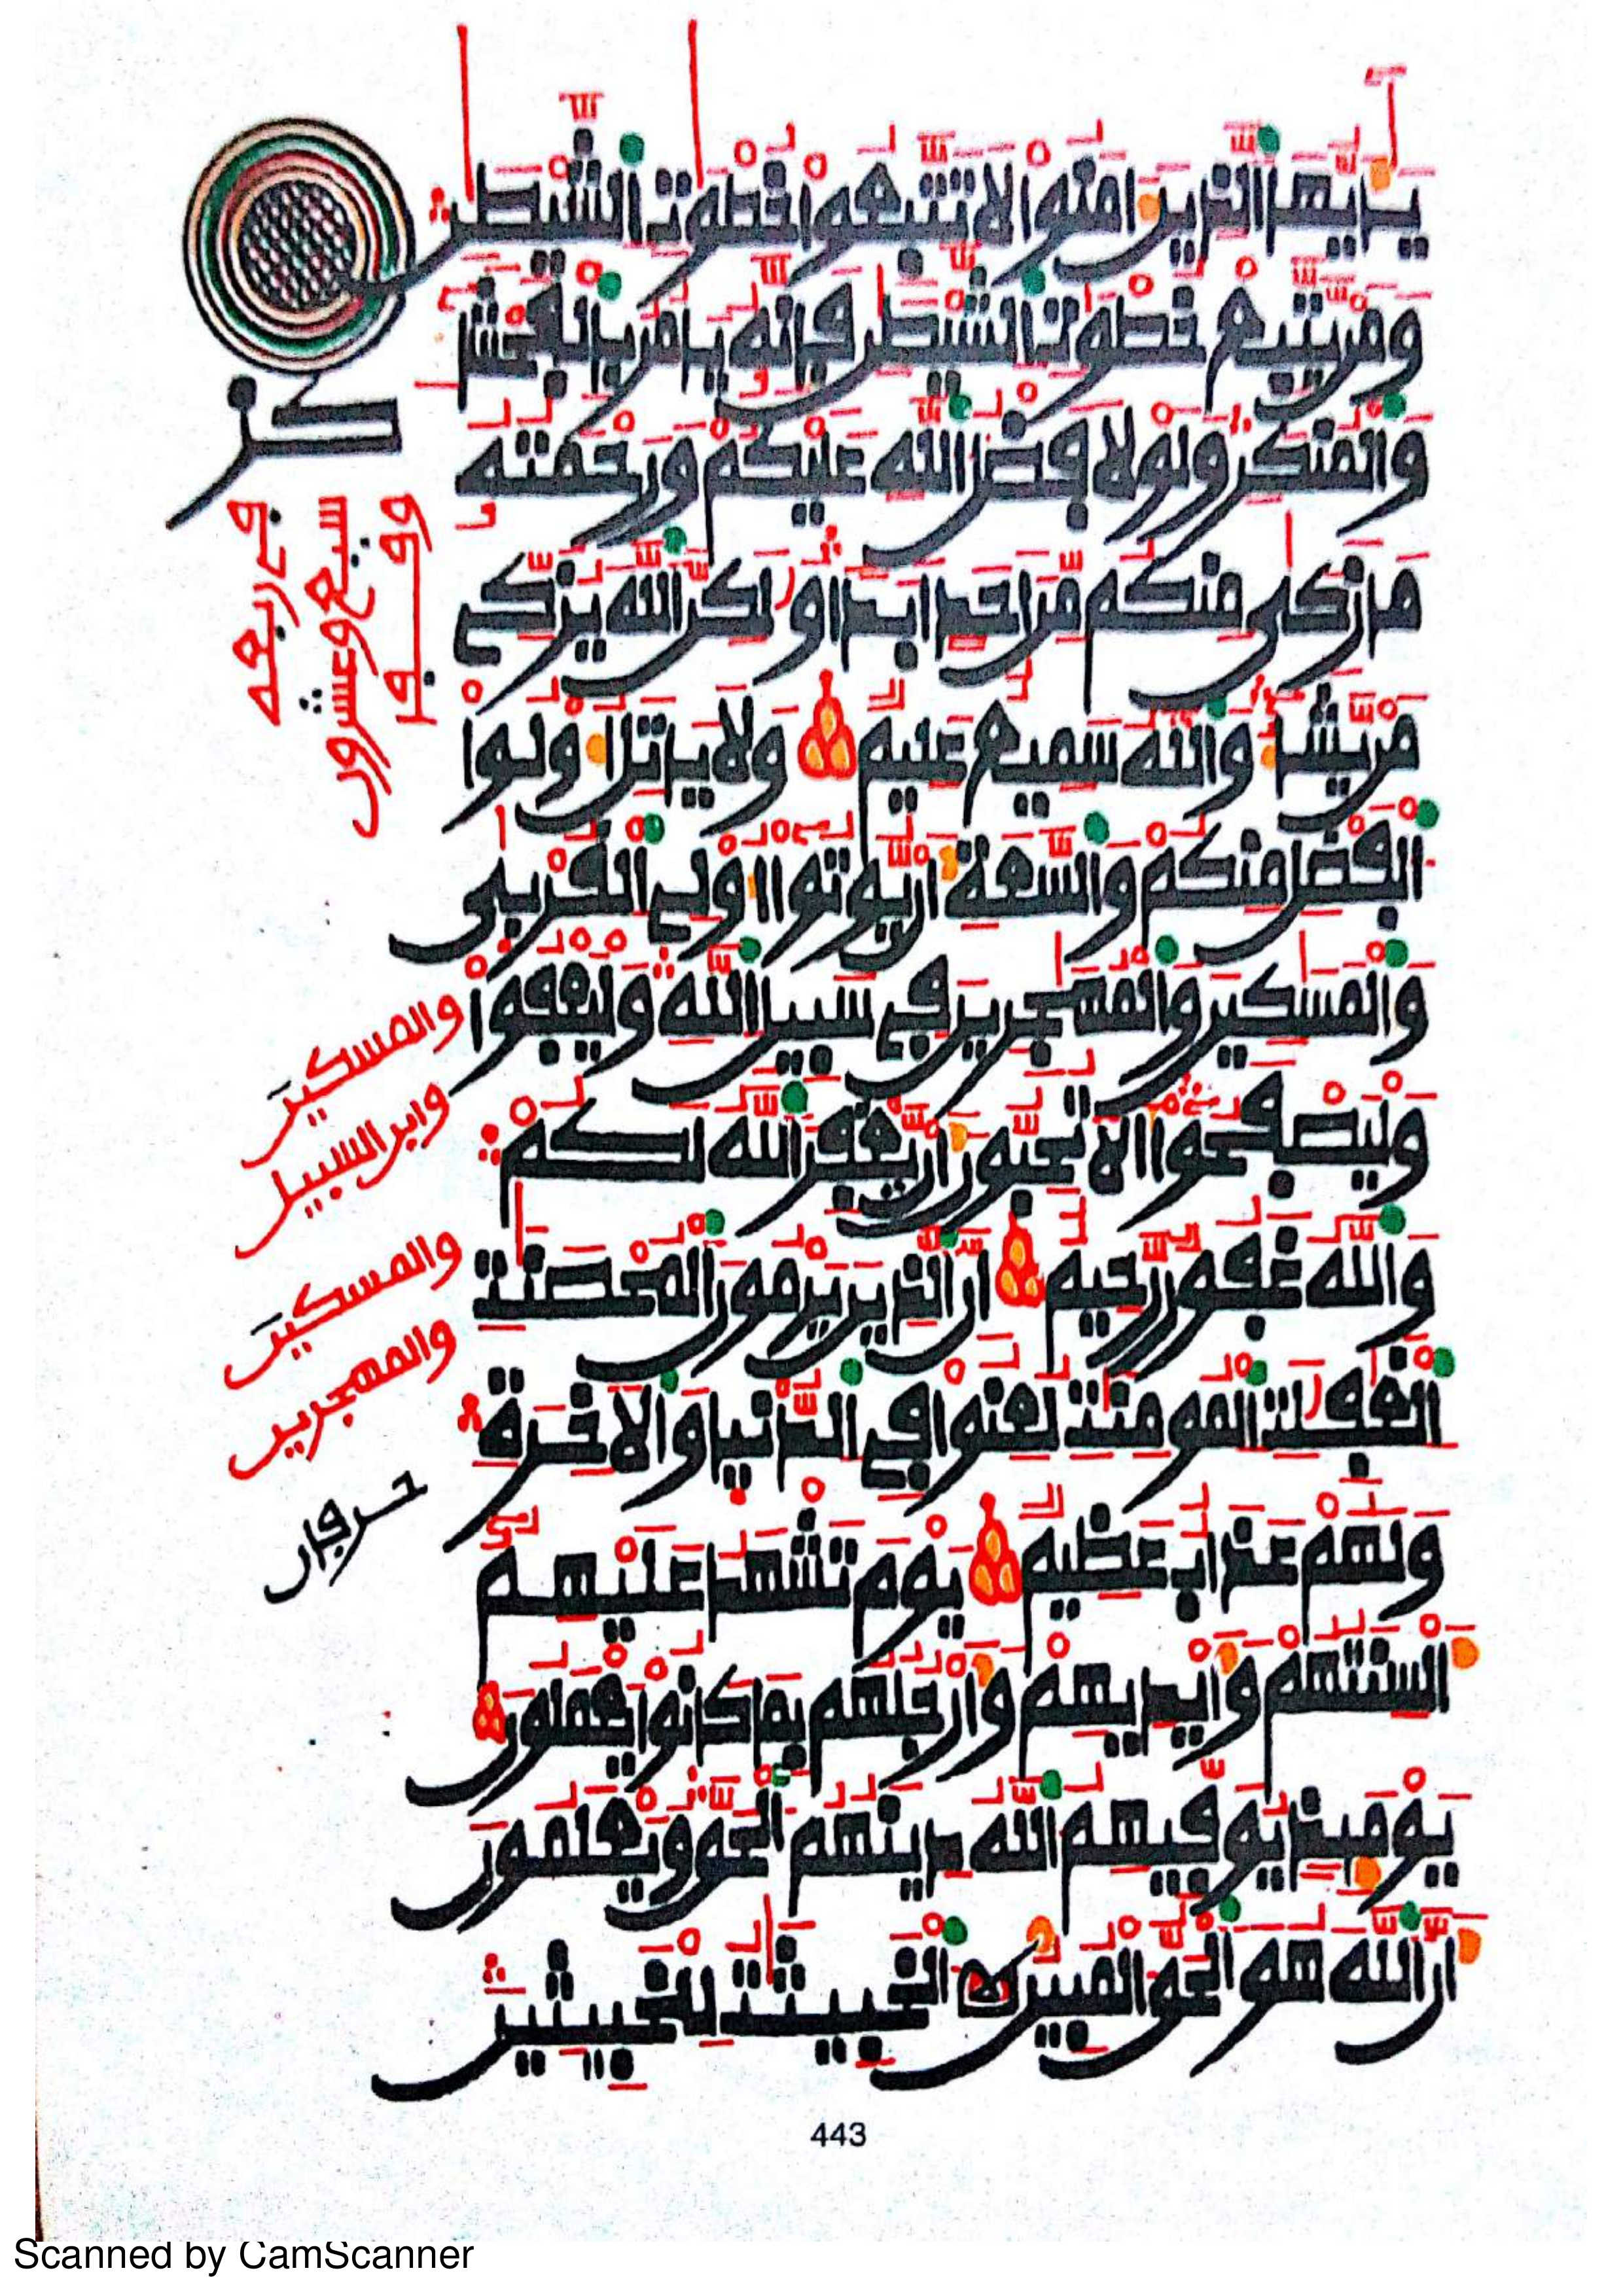 يَٰأَيُّهَا ٱلذِينَ ءَامَنُواْ لَا تَتَّبِعُواْ خُطْوَٰتِ ٱلشَّيْطَٰنِ
وَمَنْ يَّتَّبِعْ خُطْوَٰتِ ٱلشَّيْطَٰنِ فَإِنَّهُۥ يَامُرُ بِالْفَحْشَآءِ
وَالْمُنكَرِ وَلَوْلَا فَضْلُ ٱللَّهِ عَلَيْكُمْ وَرَحْمَتُهُۥ
مَا زَكَىٰ مِنكُم مِّنَ اَحَدٍ اَبَدًا وَلَٰكِنَّ ٱللَّهَ يُزَكِّے
مَنْ يَّشَآءُ وَاللَّهُ سَمِيعٌ عَلِيمٌ وَلَا يَاتَلِ أُوْلُواْ
اُ۬لْفَضْلِ مِنكُمْ وَالسَّعَةِ أَنْ يُّوتُواْ أُوْلِے اِ۬لْقُرْبَىٰ
وَالْمَسَٰكِينَ وَالْمُهَٰجِرِينَ فِے سَبِيلِ اِ۬للَّهِ وَلْيَعْفُواْ
وَلْيَصْفَحُواْ أَلَا تُحِبُّونَ أَنْ يَّغْفِرَ اَ۬للَّهُ لَكُمْ
وَاللَّهُ غَفُورٌ رَّحِيمٌ إِنَّ اَ۬لذِينَ يَرْمُونَ اَ۬لْمُحْصَنَٰتِ
اِ۬لْغَٰفِلَٰتِ اِ۬لْمُومِنَٰتِ لُعِنُواْ فِے اِ۬لدُّنْيَا وَالَاخِرَةِ
وَلَهُمْ عَذَابٌ عَظِيمٌ يَوْمَ تَشْهَدُ عَلَيْهِمُۥٓ
أَلْسِنَتُهُمْ وَأَيْدِيهِمْ وَأَرْجُلُهُم بِمَا كَانُواْ يَعْمَلُونَ
يَوْمَئِذٍ يُوَفِّيهِمُ اُ۬للَّهُ دِينَهُمُ اُ۬لْحَقَّ وَيَعْلَمُونَ
أَنَّ اَ۬للَّهَ هُوَ اَ۬لْحَقُّ اُ۬لْمُبِينُ اُ۬لْخَبِيثَٰتُ لِلْخَبِيثِينَ
والمسكين
وابن السبيل
والمسكين
والمهجرين
443
Scanned by CamScanner